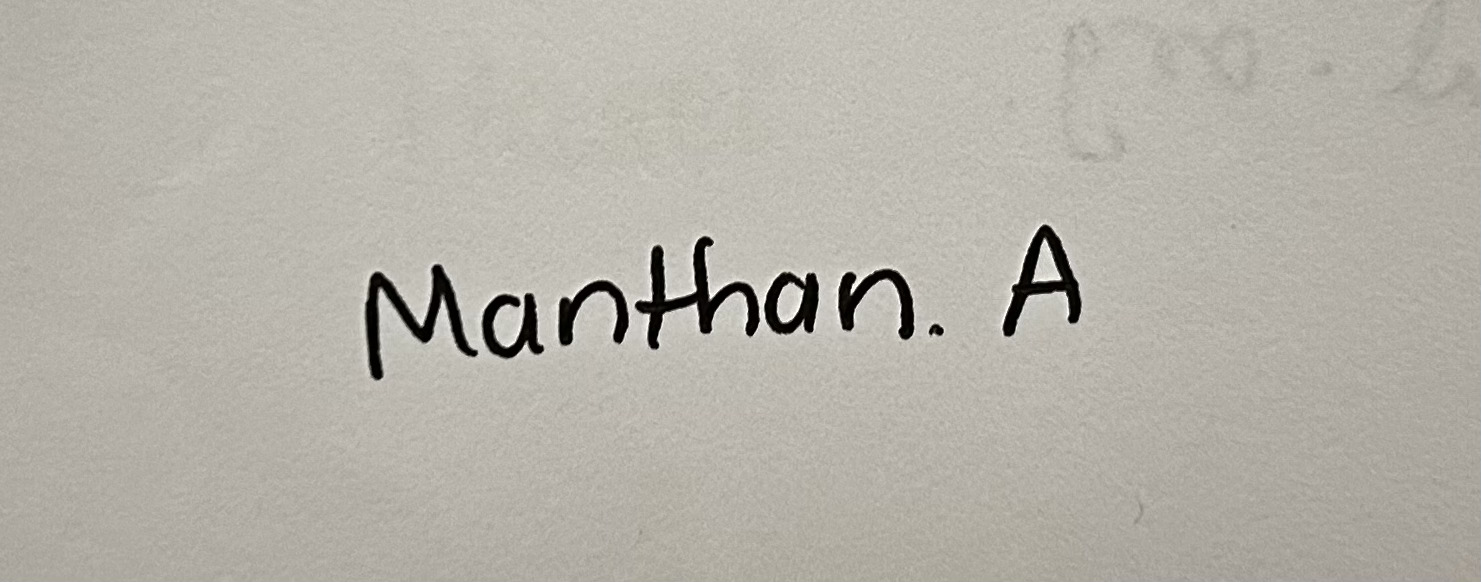 Manthan. A